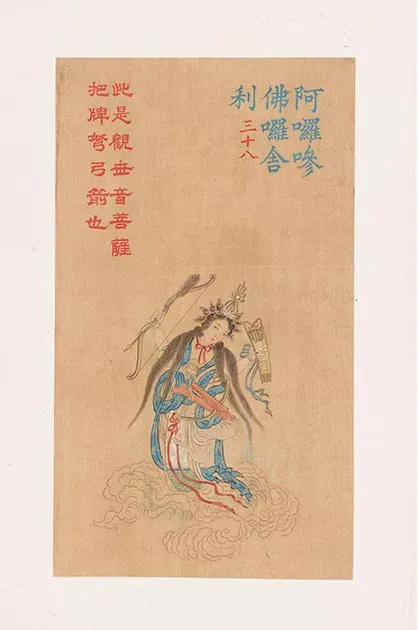 阿囉嘇
佛囉舍
利
三十八
此是觀世音菩薩
把牌弩弓箭也